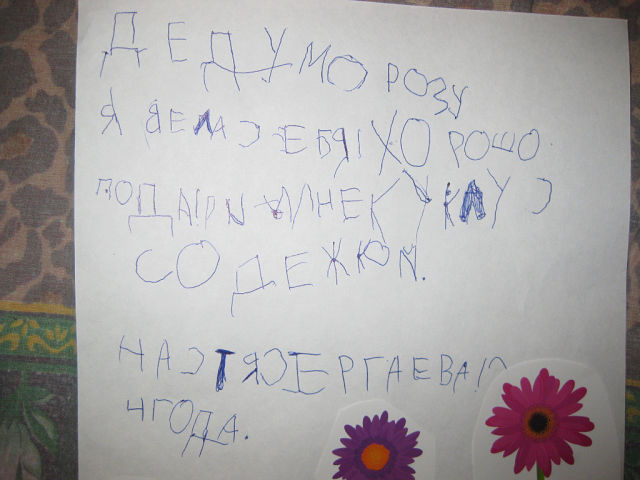 ДЕДУ МОРОЗУ
Я ВЕЛА СЕБЯ ХОРОШО
ПОДАРИ МНЕ КУКЛУ С
ОДЕЖКОЙ.
НАСТЯ СЕРГАЕВА
4 ГОДА.